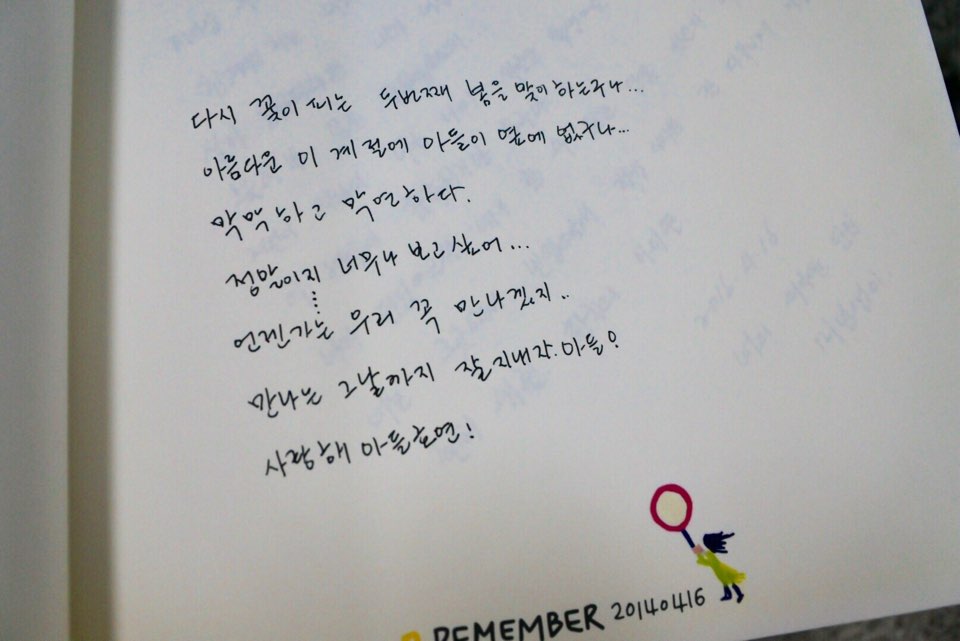 다시 꽃이 피는 두번째 봄을 맞이하는구나...
아름다운 이 계절에 아들이 옆에 없구나...
막막하고 막연하다.
정말이지 너무나 보고싶어...
언젠가는 우리 꼭 만나겠지..
만나는 그날까지 잘지내자.아들?
사랑해 아들호연!
REMEMBER 20140416